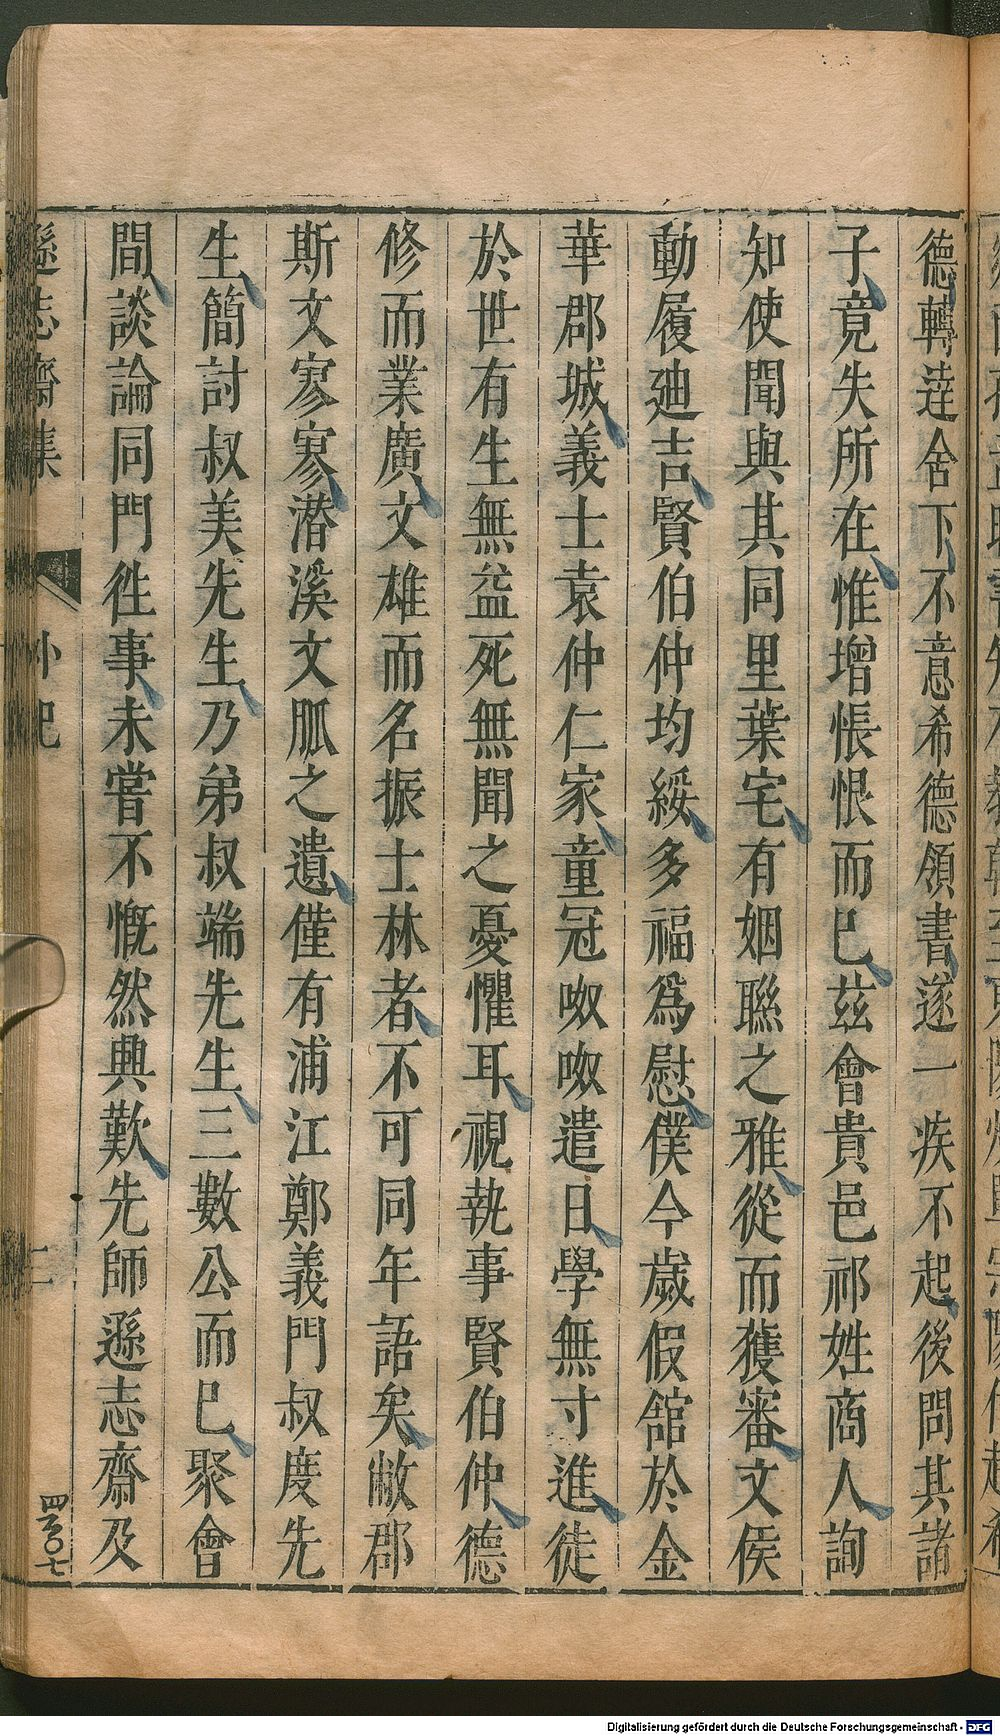 德轉達舍下不意希德領書遂一疾不起後問其諸
子竟失所在惟增悵恨而已茲會貴邑祁姓商人詢
知使聞與其同里葉宅有姻聯之雅從而獲審文侯
動履迪吉賢伯仲均綏多福爲慰僕今歲假舘於金
華郡城義士袁仲仁家童冠呶呶遣日學無寸進徒
於世有生無益死無聞之憂懼耳視執事賢伯仲德
修而業廣文雄而名振士林者不可同年語矣敝郡
斯文寥寥潜溪文脈之遺僅有浦江鄭義門叔度先
生簡討叔美先生乃弟叔端先生三數公而已聚會
間談論同門徃事未嘗不慨然興歎先師遜志齋及
遜志齋集
外紀
二
四百〇七
Digitalisierung gefördert durch die Deutsche Forschungsgemeinschaft - DFG